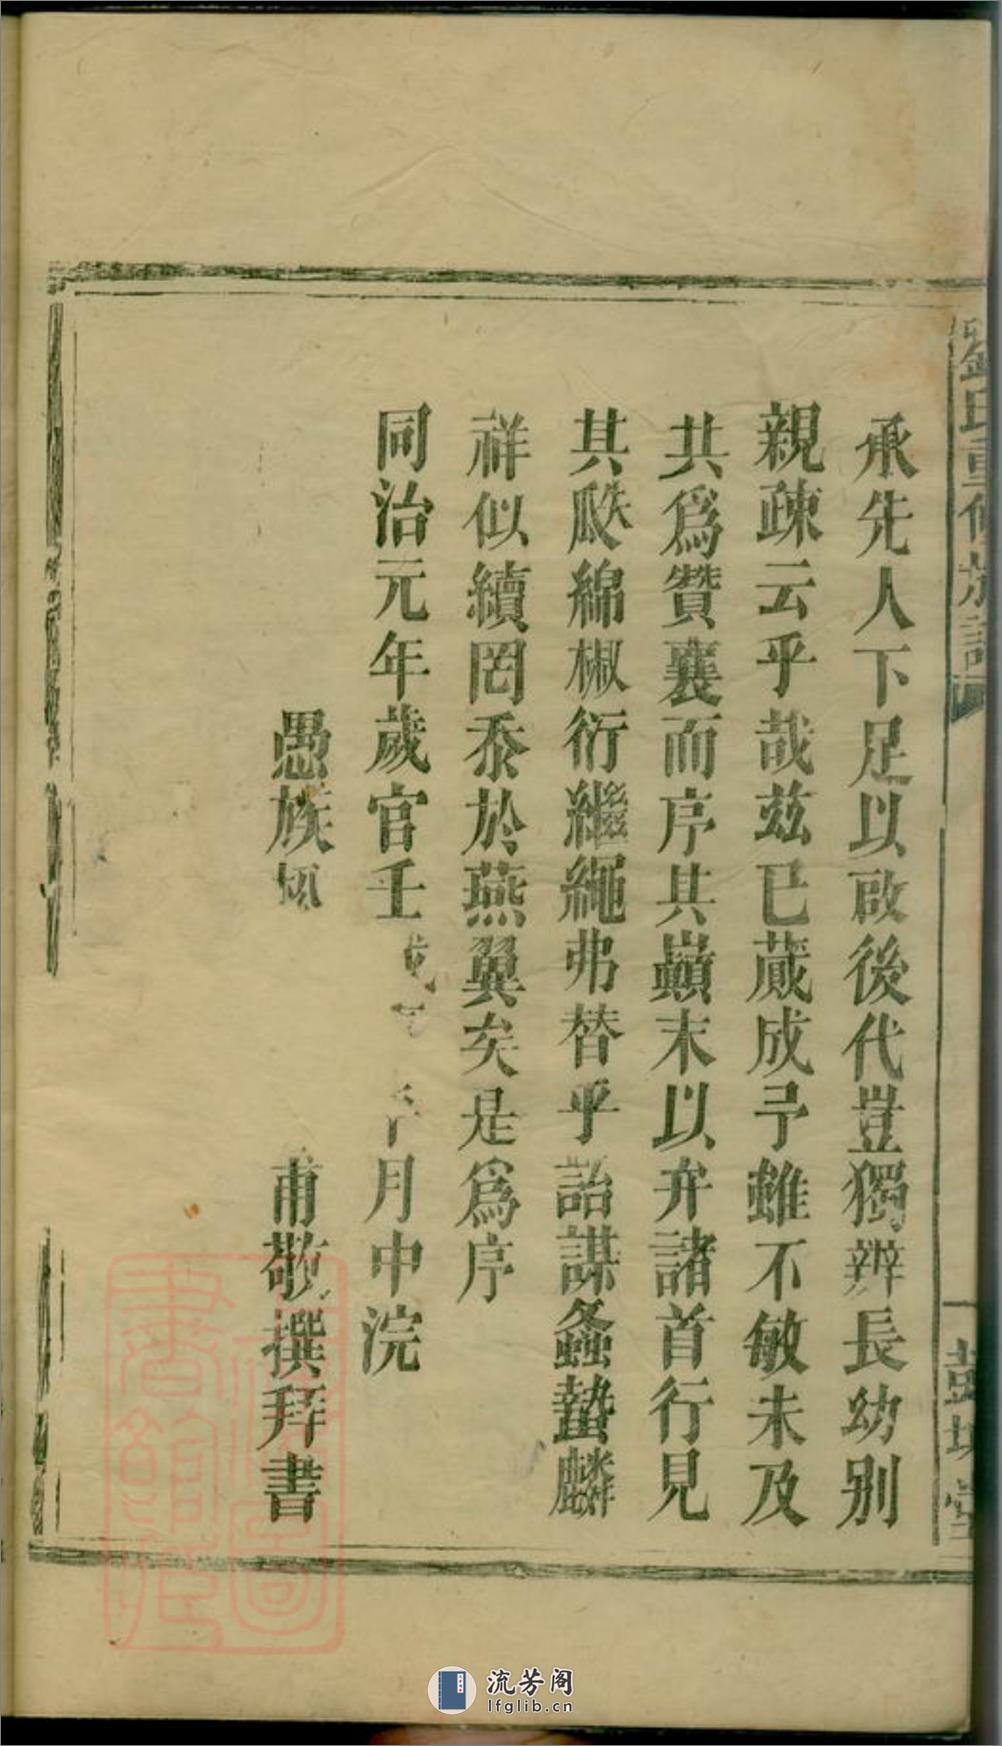 劉氏重修族譜
彭城堂
承先人下足以啟後代豈獨辨長幼別
親疎云乎哉茲已蕆成予雖不敏未及
共爲贊襄而序其巔末以弁諸首行見
其瓞綿椒衍繼繩弗替乎詒謀螽蟄麟
祥似續罔忝於燕翼矣是爲序
同治元年歲官壬戌 月中浣
愚族 甫敬撰拜書
流芳阁
lfglib.cn